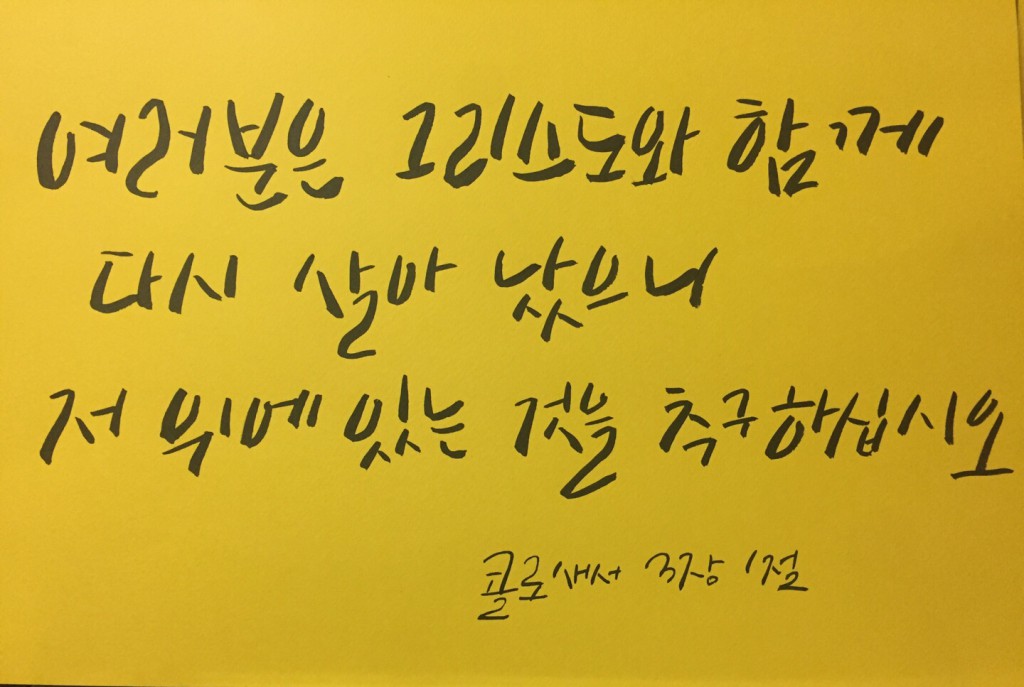 여러분은 그리스도와 함께
다시 살아 났으니
저 위에 있는 것을 추구하십시오
콜로새서 3장 1절